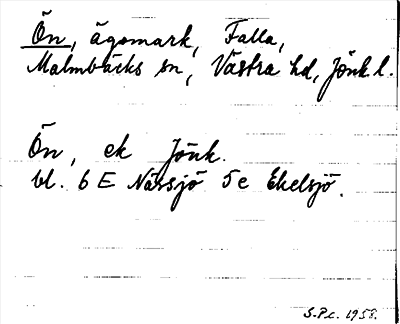 Ön, ägomark, Falla,
Malmbäcks sn, Västra hd, Jönk l.
Ön, ek Jönk.
bl. 6 E Nässjö 5 e Ekelsjö.
S.Pc. 1958.